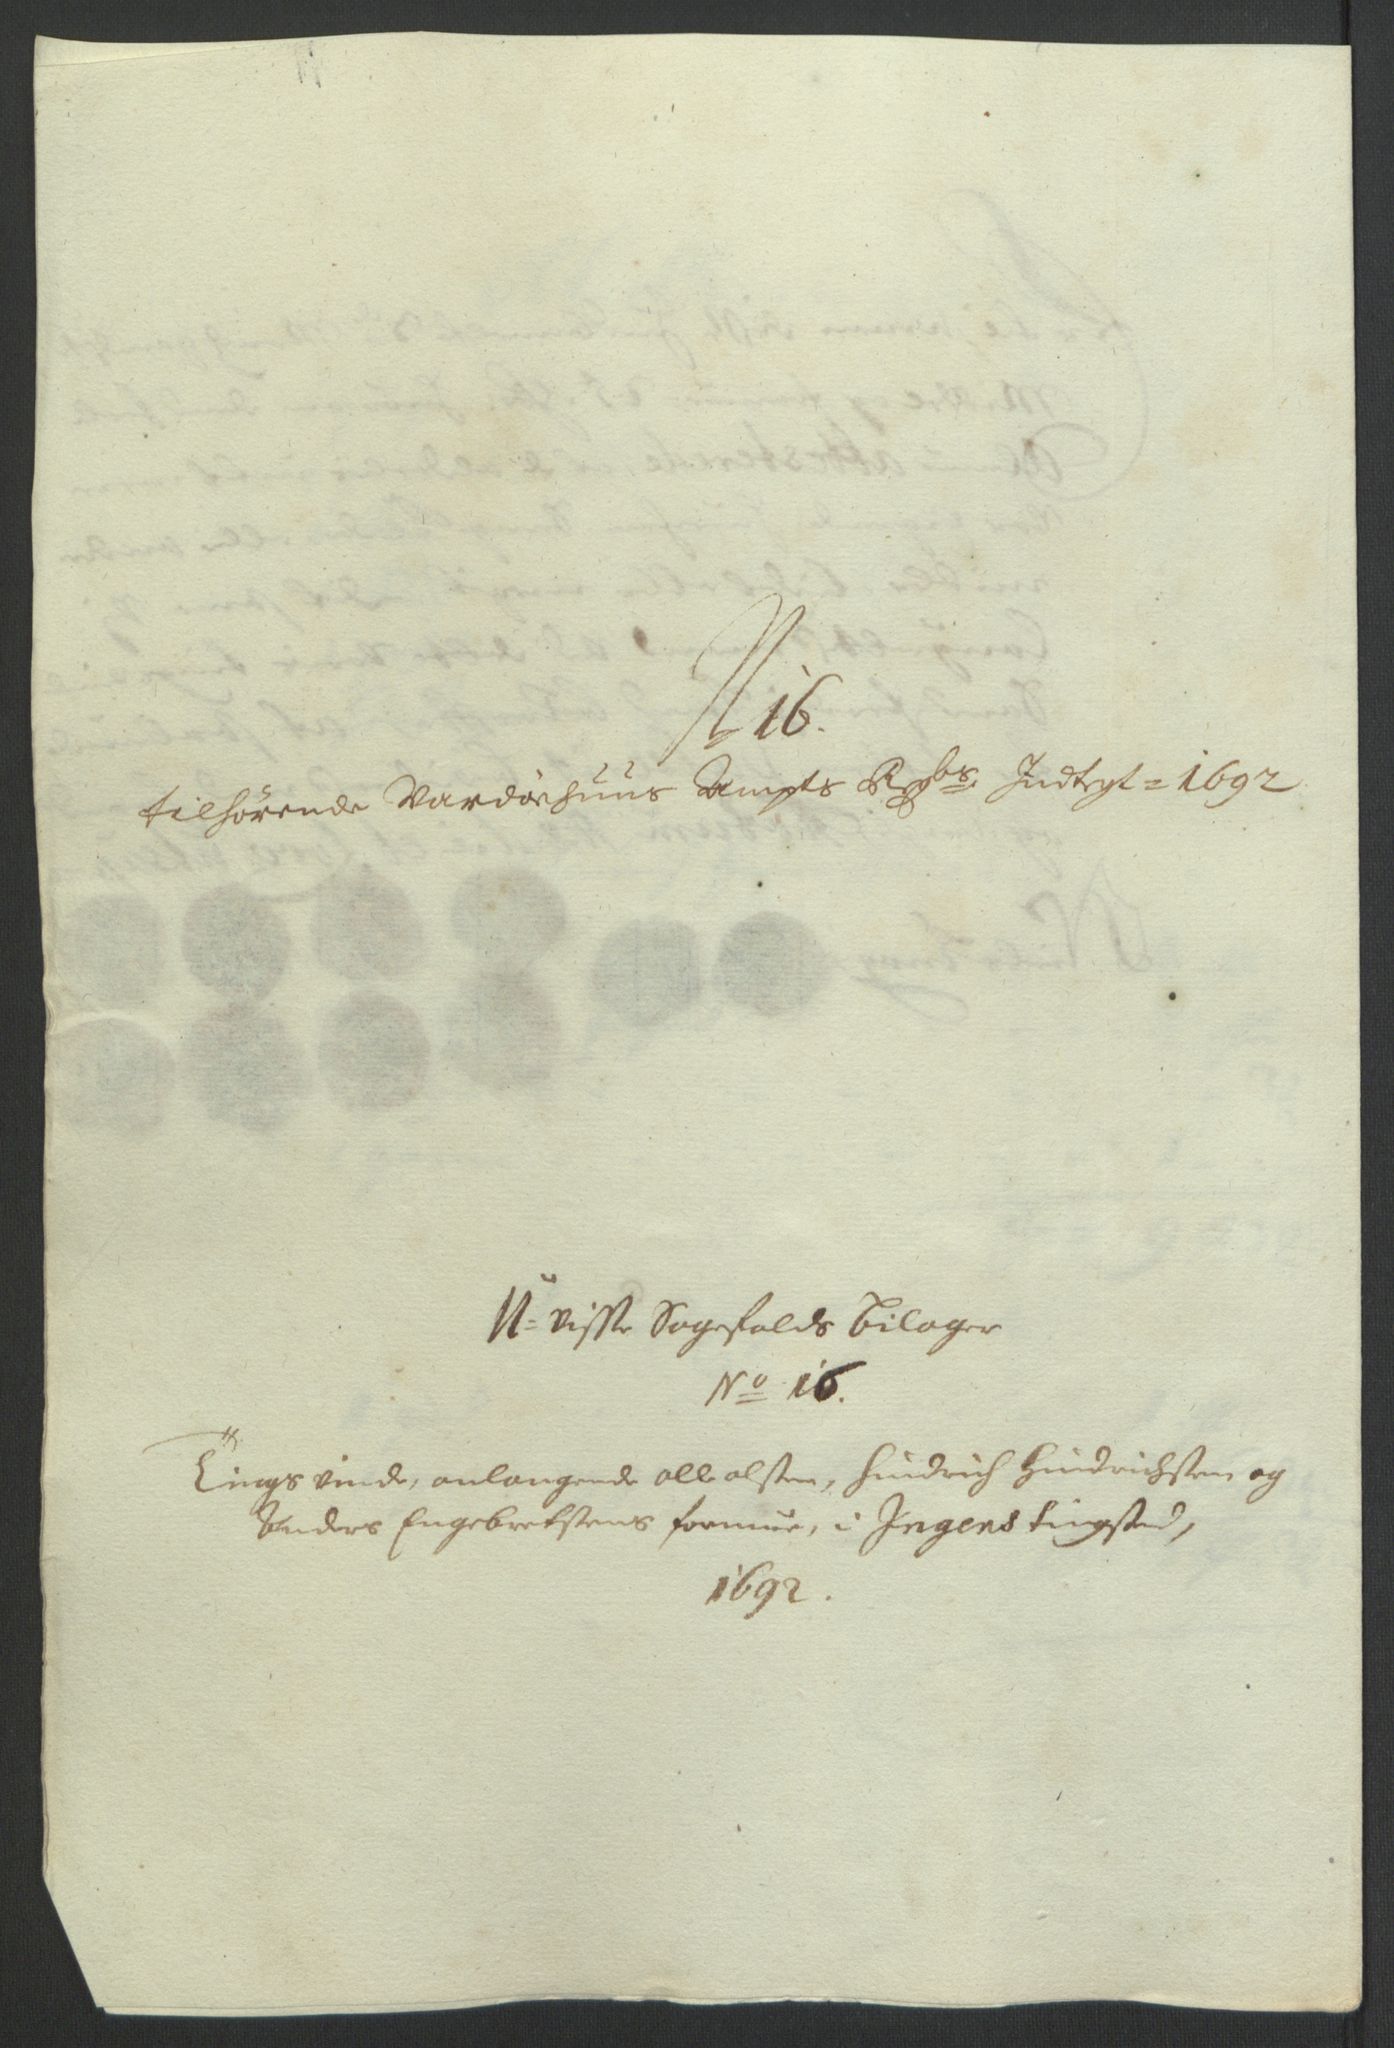 N 16.
tilhörende Wardöehuus Ampts Regbs. Indtegt = 1692
U=visse Sagefalds Bilager
No 16.
Tings vinde, anlangende olle olsen, Hindrich Hindrichsen og
Anders Engebretsens formue, i Ingens tingsted,
1692.